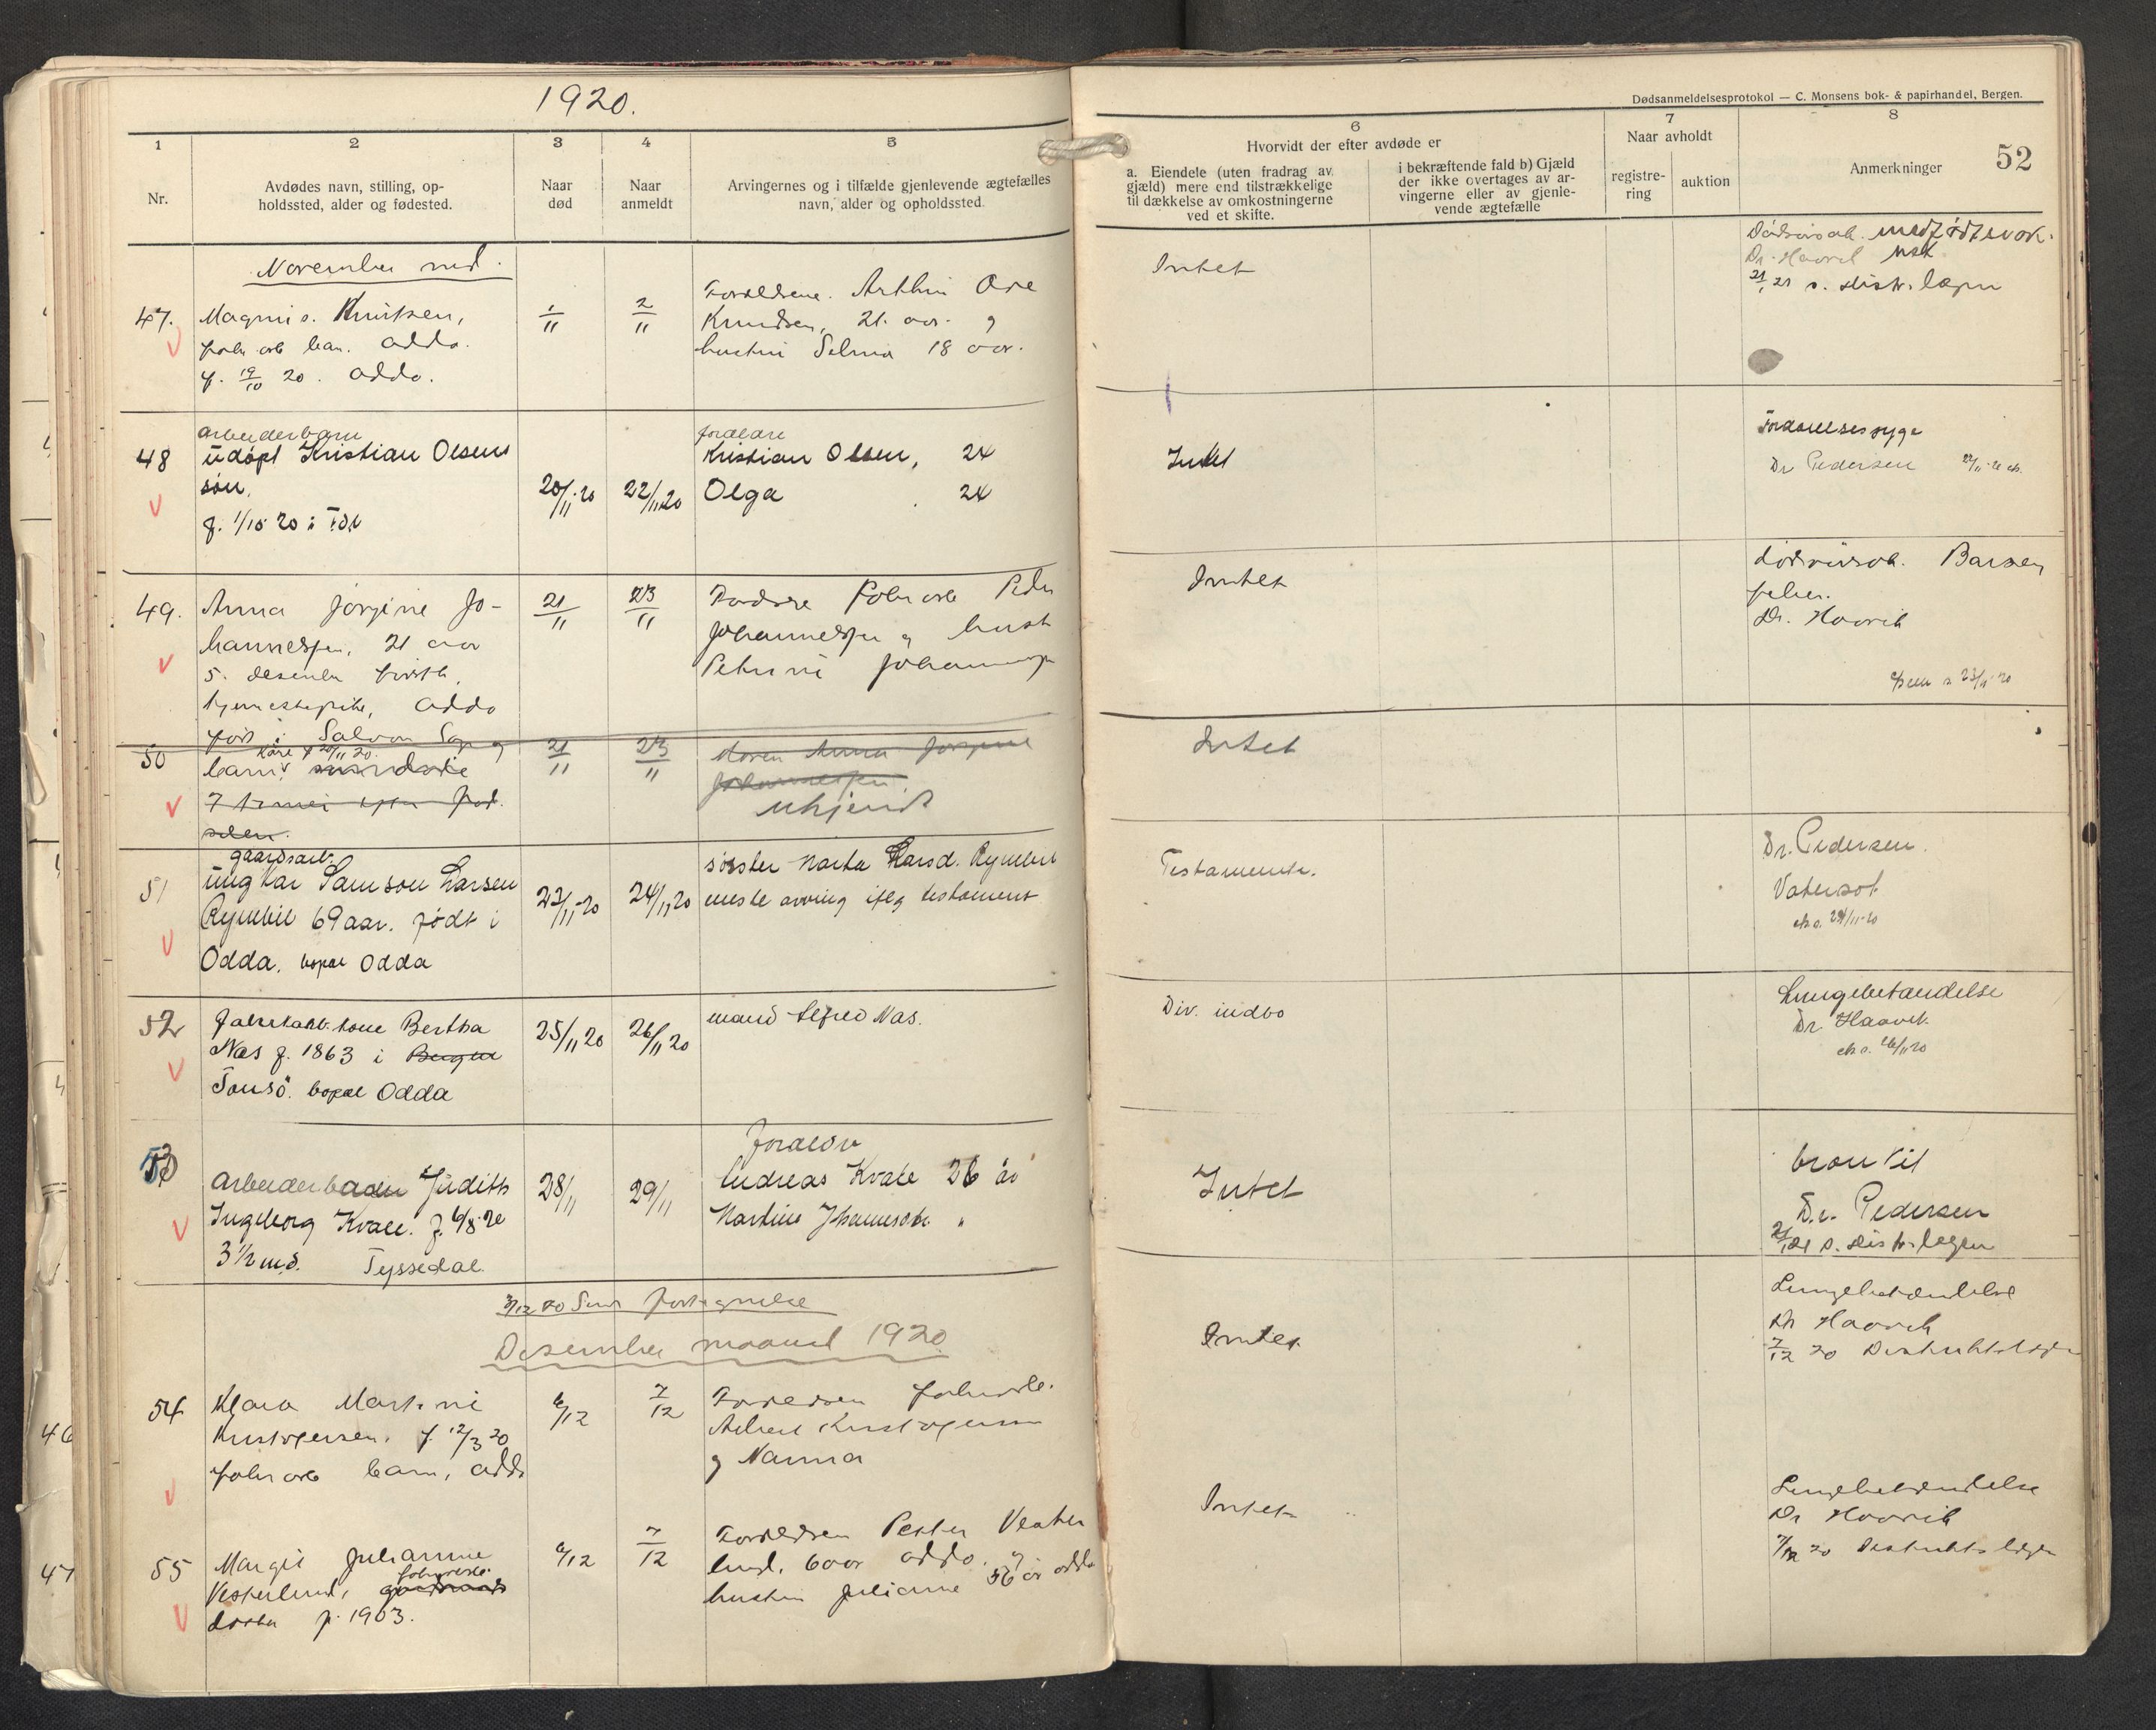 1920.
Dødsanmeldelsesprotokol — C. Monsens bok- & papirhandel, Bergen.
52
1
2
3
4
5
6
7
8
Nr.
Avdødes navn, stilling, op-
holdssted, alder og fødested.
Naar
død
Naar
anmeldt
Arvingernes og i tilfælde gjenlevende ægtefælles
navn, alder og opholdssted
Hvorvidt der efter avdøde er
a. Eiendele (uten fradrag av
gjæld) mere end tilstrækkelige
til dækkelse av omkostningerne
ved et skifte.
i bekræftende fald b) Gjæld
der ikke overtages av ar-
vingerne eller av gjenle-
vende ægtefælle
Naar avholdt
registre-
ring
auktion
Anmerkninger
November md.
47.
Magnus Knutsen,
fabr arb barn. Odda.
f. 19/10 20. Odda.
1/11
2/11
Forældrene. Arthur
Knudsen, 21. aar. og
hustru Selma 18 aar.
Intet
Dødsårsak. medfødt svak-
Dr. Haavik
21/1 21 s. distr. lægen
48
arbeiderbarn
udøpt Kristian Olsens
søn.
f. 1/10 20 i
20/11-20
22/11 20
forældre
Kristian Olsen, 24
Olga 24
Intet
Fordøielsessyge
Dr Pedersen
49.
Anna Jørgine Jo-
hannessen, 21 aar
5. desember
tjenestepike, Odda
født i
21/11
23/11
Forældre Fabr arb Peder
Johannessen og hust
Petrine Johannessen
Intet
dødsårsak. Barsel
feber.
Dr. Haavik
23/11-20
50
Kåre f 20/11 20.
barn
7 timer efter fød.
selen.
21/11
23/11
Moren Anna Jørgine
Johannessen.
ukjendt
Intet
51
gaardsarb.
ungkar Samson Larsen
69 aar. født i
Odda. bopæl Odda
23/11-20
24/11 20
søster Marta Larsd.
eneste arving iflg testament
Testamente.
Dr. Pedersen.
Vatersot
24/11-20
52
kone Bertha
Nas f. 1863 i Bergen
bopæl Odda
25/11 20
26/11 20
mand Alfred Nas.
Div. indbo
Lungebetændelse
Dr. Haavik
26/11 20
53
Arbeiderbarn Judith
Ingeborg Kvale. f. 6/8-20
3 1/2 md. Tyssedal
28/11
29/11
forældre
Andreas Kvale 26 år
Martine "
Intet
bronkit
Dr. Pedersen
21/1 21 s. distr. lægen
3/12 20 Sendt fortegnelse
Desember maaned 1920
54
Klara Martine
Kristofersen. f. 12/3 20
fabr arb barn, Odda
6/12
7/12
Forældrene fabr arb.
Kristofersen
og Nanna
Intet
Lungebetændelse
Dr Haavik
7/12 20 Distriktslægen
55
Margit Julianne
fabr arb.
Vesterlund, gaardmands
datter f. 1903.
6/12
7/12
Forældrene Petter Vester
lund, 60 aar Odda. og
hustru Julianne 56 år Odda
Intet
Lungebetændelse
Dr Haavik
7/12 20 Distriktslægen
46
47